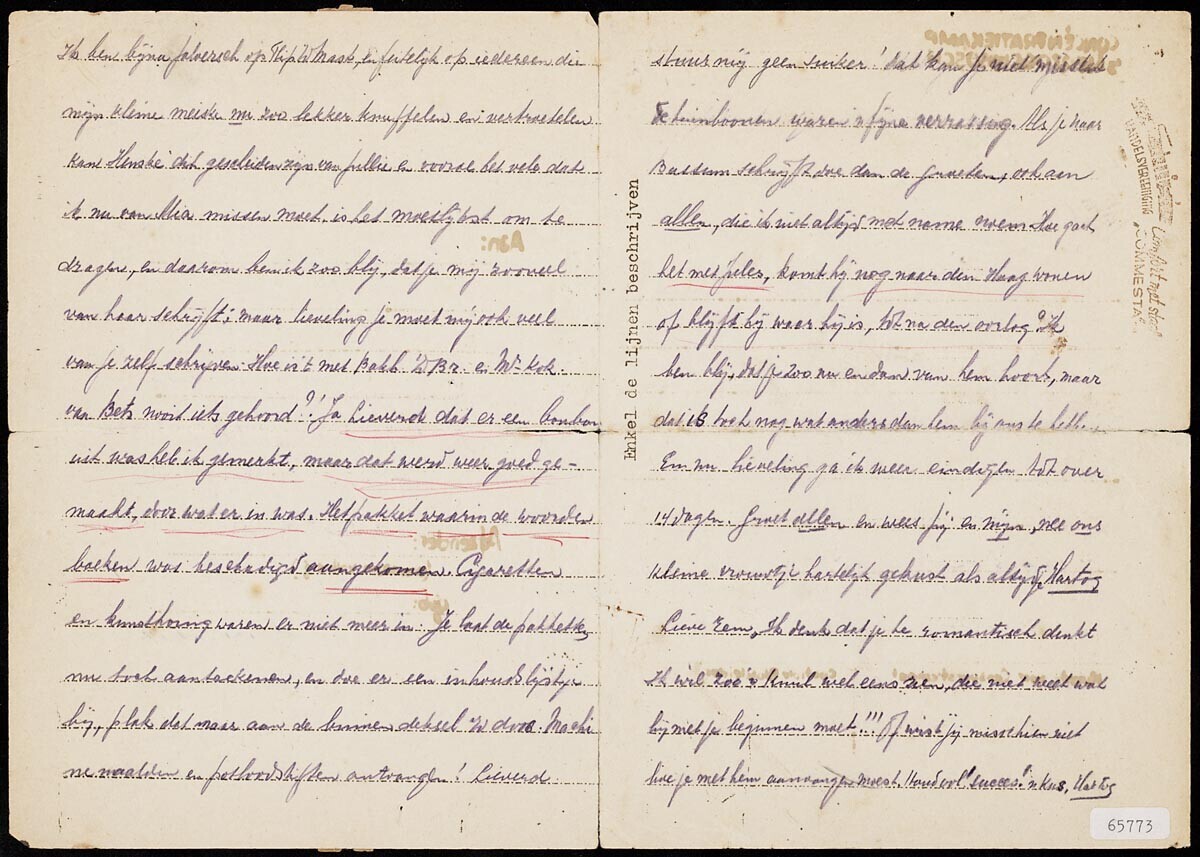 Ik ben bijna jaloersch op Flip W Maas, en feitelijk op iedereen die
mijn kleine meiske nu zoo lekker knuffelen en vertroetelen
kan! Henske dit gescheiden zijn van jullie en vooral het vele dat
ik nu van Mia missen moet is het moeilijkst om te
dragen, en daarom ben ik zoo blij, dat je mij zooveel
van haar schrijft; maar lieveling je moet mij ook veel
van je zelf schrijven. Hoe is 't met Br. en Mr Kok.
van Bets nooit iets gehoord?! Ja Lieverd dat er een bonbon
uit was heb ik gemerkt, maar dat werd weer goed ge-
maakt, door wat er in was. Het pakket waarin de woorden
boeken was beschadigd aangekomen. Cigaretten
en kunsthoning waren er niet meer in. Je laat de pakketten
nu toch aanteekenen, en doe er een inhoudslijstje
bij, plak dat maar aan de binnen deksel v/d doos. Machi
ne naalden en potloodstiften ontvangen! Lieverd
Enkel de lijnen beschrijven
stuur mij geen suiker! dat kan je niet missen
De tuinboonen waren 'n fijne verrassing. Als je naar
Bussum schrijft doe dan de groeten, ook aan
allen, die ik niet altijd met name noem. Hoe gaat
het met Jules, komt hij nog naar den Haag wonen
of blijft hij waar hij is, tot na den oorlog? Ik
ben blij, dat je zoo nu en dan van hem hoort, maar
dat is toch nog wat anders dan hem bij ons te hebb.
En nu lieveling ga ik weer eindigen tot over
14 dagen. Groet allen en wees jij en mijn, nee ons
kleine vrouwtje hartelijk gekust als altijd je Hartog
Lieve Zem, Ik denk dat je te romantisch denkt
Ik wil zoo'n knul wel eens zien, die niet weet wat
hij met je beginnen moet!!! Of wist jij misschien niet
hoe je met hem aanvangen moest. Houd vol! "succes!" 'n Kus, Hartog
HANDELSVEREENIGING
Aan:
Afzender:
CONCENTRATIEKAMP
65773